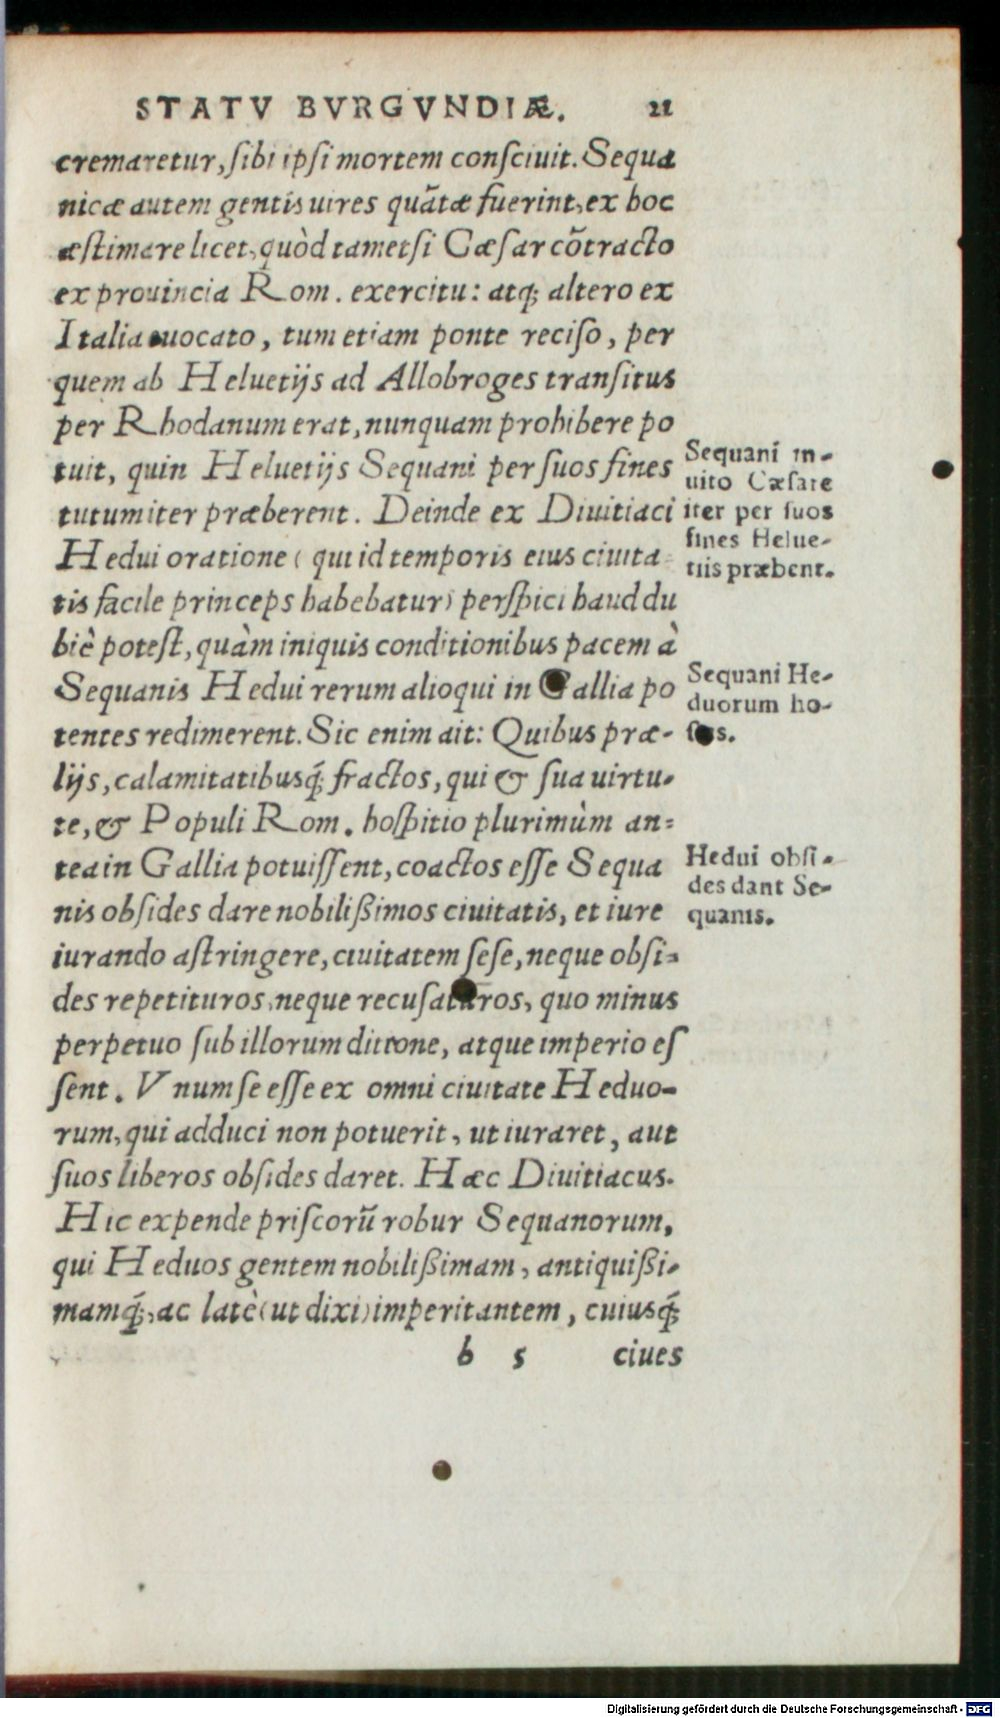 STATV BVRGVNDIÆ. 21
cremaretur, sibi ipsi mortem consciuit. Sequa
nicæ autem gentis uires quãtæ fuerint, ex hoc
æstimare licet, quòd tametsi Cæsar cõtracto
ex prouincia Rom. exercitu: atq; altero ex
Italia euocato, tum etiam ponte reciso, per
quem ab Heluetijs ad Allobroges transitus
per Rhodanum erat, nunquam prohibere po
tuit, quin Heluetijs Sequani per suos fines
tutum iter præberent. Deinde ex Diuitiaci
Hedui oratione (qui id temporis eius ciuita
tis facile princeps habebatur) perspici haud du
biè potest, quàm iniquis conditionibus pacem à
Sequanis Hedui rerum alioqui in Gallia po
tentes redimerent. Sic enim ait: Quibus præ-
lijs, calamitatibusq́; fractos, qui & sua uirtu-
te, & Populi Rom. hospitio plurimùm an-
tea in Gallia potuissent, coactos esse Sequa
nis obsides dare nobilißimos ciuitatis, et iure
iurando astringere, ciuitatem sese, neque obsi-
des repetituros, neque recusaturos, quo minus
perpetuo sub illorum ditione, atque imperio es
sent. Vnum se esse ex omni ciuitate Heduo-
rum, qui adduci non potuerit, ut iuraret, aut
suos liberos obsides daret. Hæc Diuitiacus.
Hic expende priscorũ robur Sequanorum,
qui Heduos gentem nobilißimam, antiquißi-
mamq́;, ac latè (ut dixi) imperitantem, cuiusq́;
b 5 ciues
Sequani in-
uito Cæsare
iter per suos
fines Helue-
tiis præbent.
Sequani He-
duorum ho-
stes.
Hedui obsi-
des dant Se-
quanis.
Digitalisierung gefördert durch die Deutsche Forschungsgemeinschaft - DFG